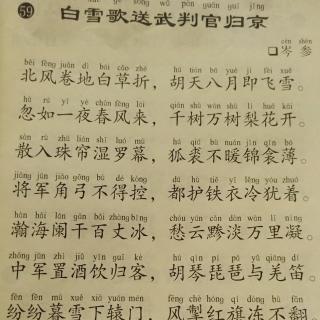 xuě gē sòng wǔ pàn guān guī jīng
59 白雪歌送武判官归京
cén shēn
□岑 参
běi fēng juǎn dì bái cǎo zhé hú tiān bā yuè jí fēi xuě
北风卷地白草折，胡天八月即飞雪。
hū rú yí yè chūn fēng lái qiān shù wàn shù lí huā kāi
忽如一夜春风来，千树万树梨花开。
sàn rù zhū lián shī luó mù hú qiú bù nuǎn jǐn qīn bó
散入珠帘湿罗幕，狐裘不暖锦衾薄。
jiāng jūn jiǎo gōng bù dé kòng dū hù tiě yī lěng yóu zhuó
将军角弓不得控，都护铁衣冷犹着。
hàn hǎi lán gān bǎi zhàng bīng chóu yún cǎn dàn wàn lǐ níng
瀚海阑干百丈冰，愁云黪淡万里凝。
zhōng jūn zhì jiǔ yǐn guī kè hú qín pí pá yǔ qiāng dí
中军置酒饮归客，胡琴琵琶与羌笛。
fēn fēn mù xuě xià yuán mén fēng chè hóng qí dòng bù fān
纷纷暮雪下辕门，风掣红旗冻不翻。